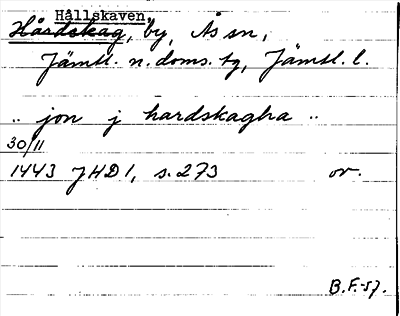 Hållskaven,
Hårdskag, by, Ås sn,
Jämtl. n. doms. tg, Jämtl. l.
.. jon j hardskagha ..
30/11
1443 JHD 1, s. 273 or.
B.F-57.